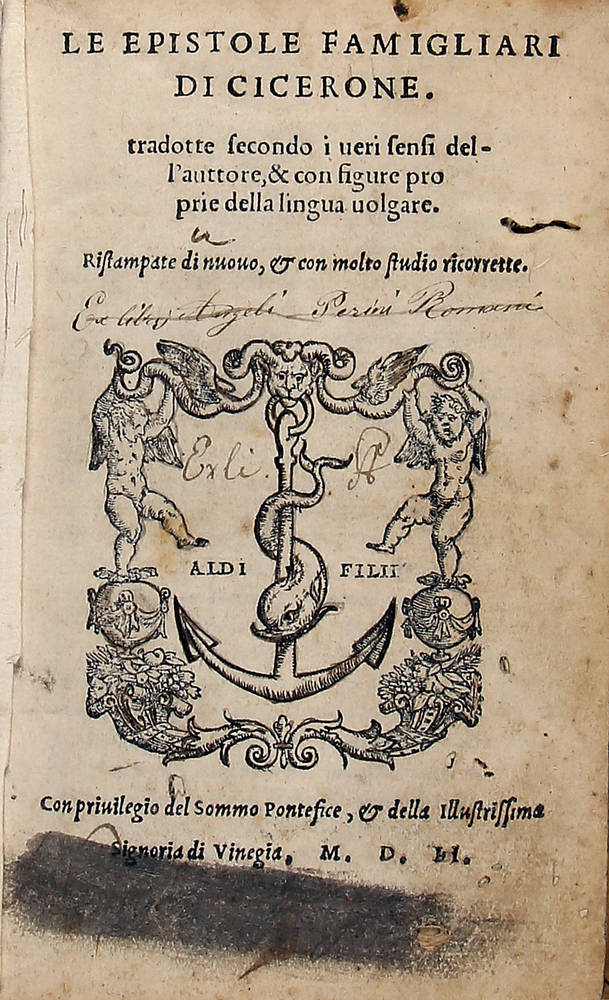 LE EPISTOLE FAMIGLIARI
DI CICERONE.
tradotte ſecondo i ueri ſenſi del-
l'auttore,& con figure pro
prie della lingua uolgare.
Riſtampate di nuouo, & con molto ſtudio ricorrette.
Ex libris Angeli Perini Romani
Exli.
ALDI FILII
Con priuilegio del Sommo Pontefice, & della Illuſtriſſima
Signoria di Vinegia. M. D. LI.